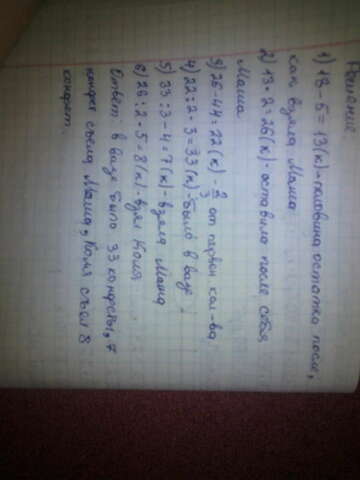 Решение:
1) 18-5=13(к)-половина остатка после,
как взяла Маша
2) 13·2=26(к)-оставила после себя
Маша.
3) 26-44=22(к)-2/3 от первон кол-ва
4) 22:2·3=33(к)-было в вазе
5) 33:3-4=7(к)-взяла Маша
6) 26:2-5=8(к)-взял Коля
Ответ: в вазе было 33 конфеты, 7
конфет съела Маша, Коля съел 8
конфет.